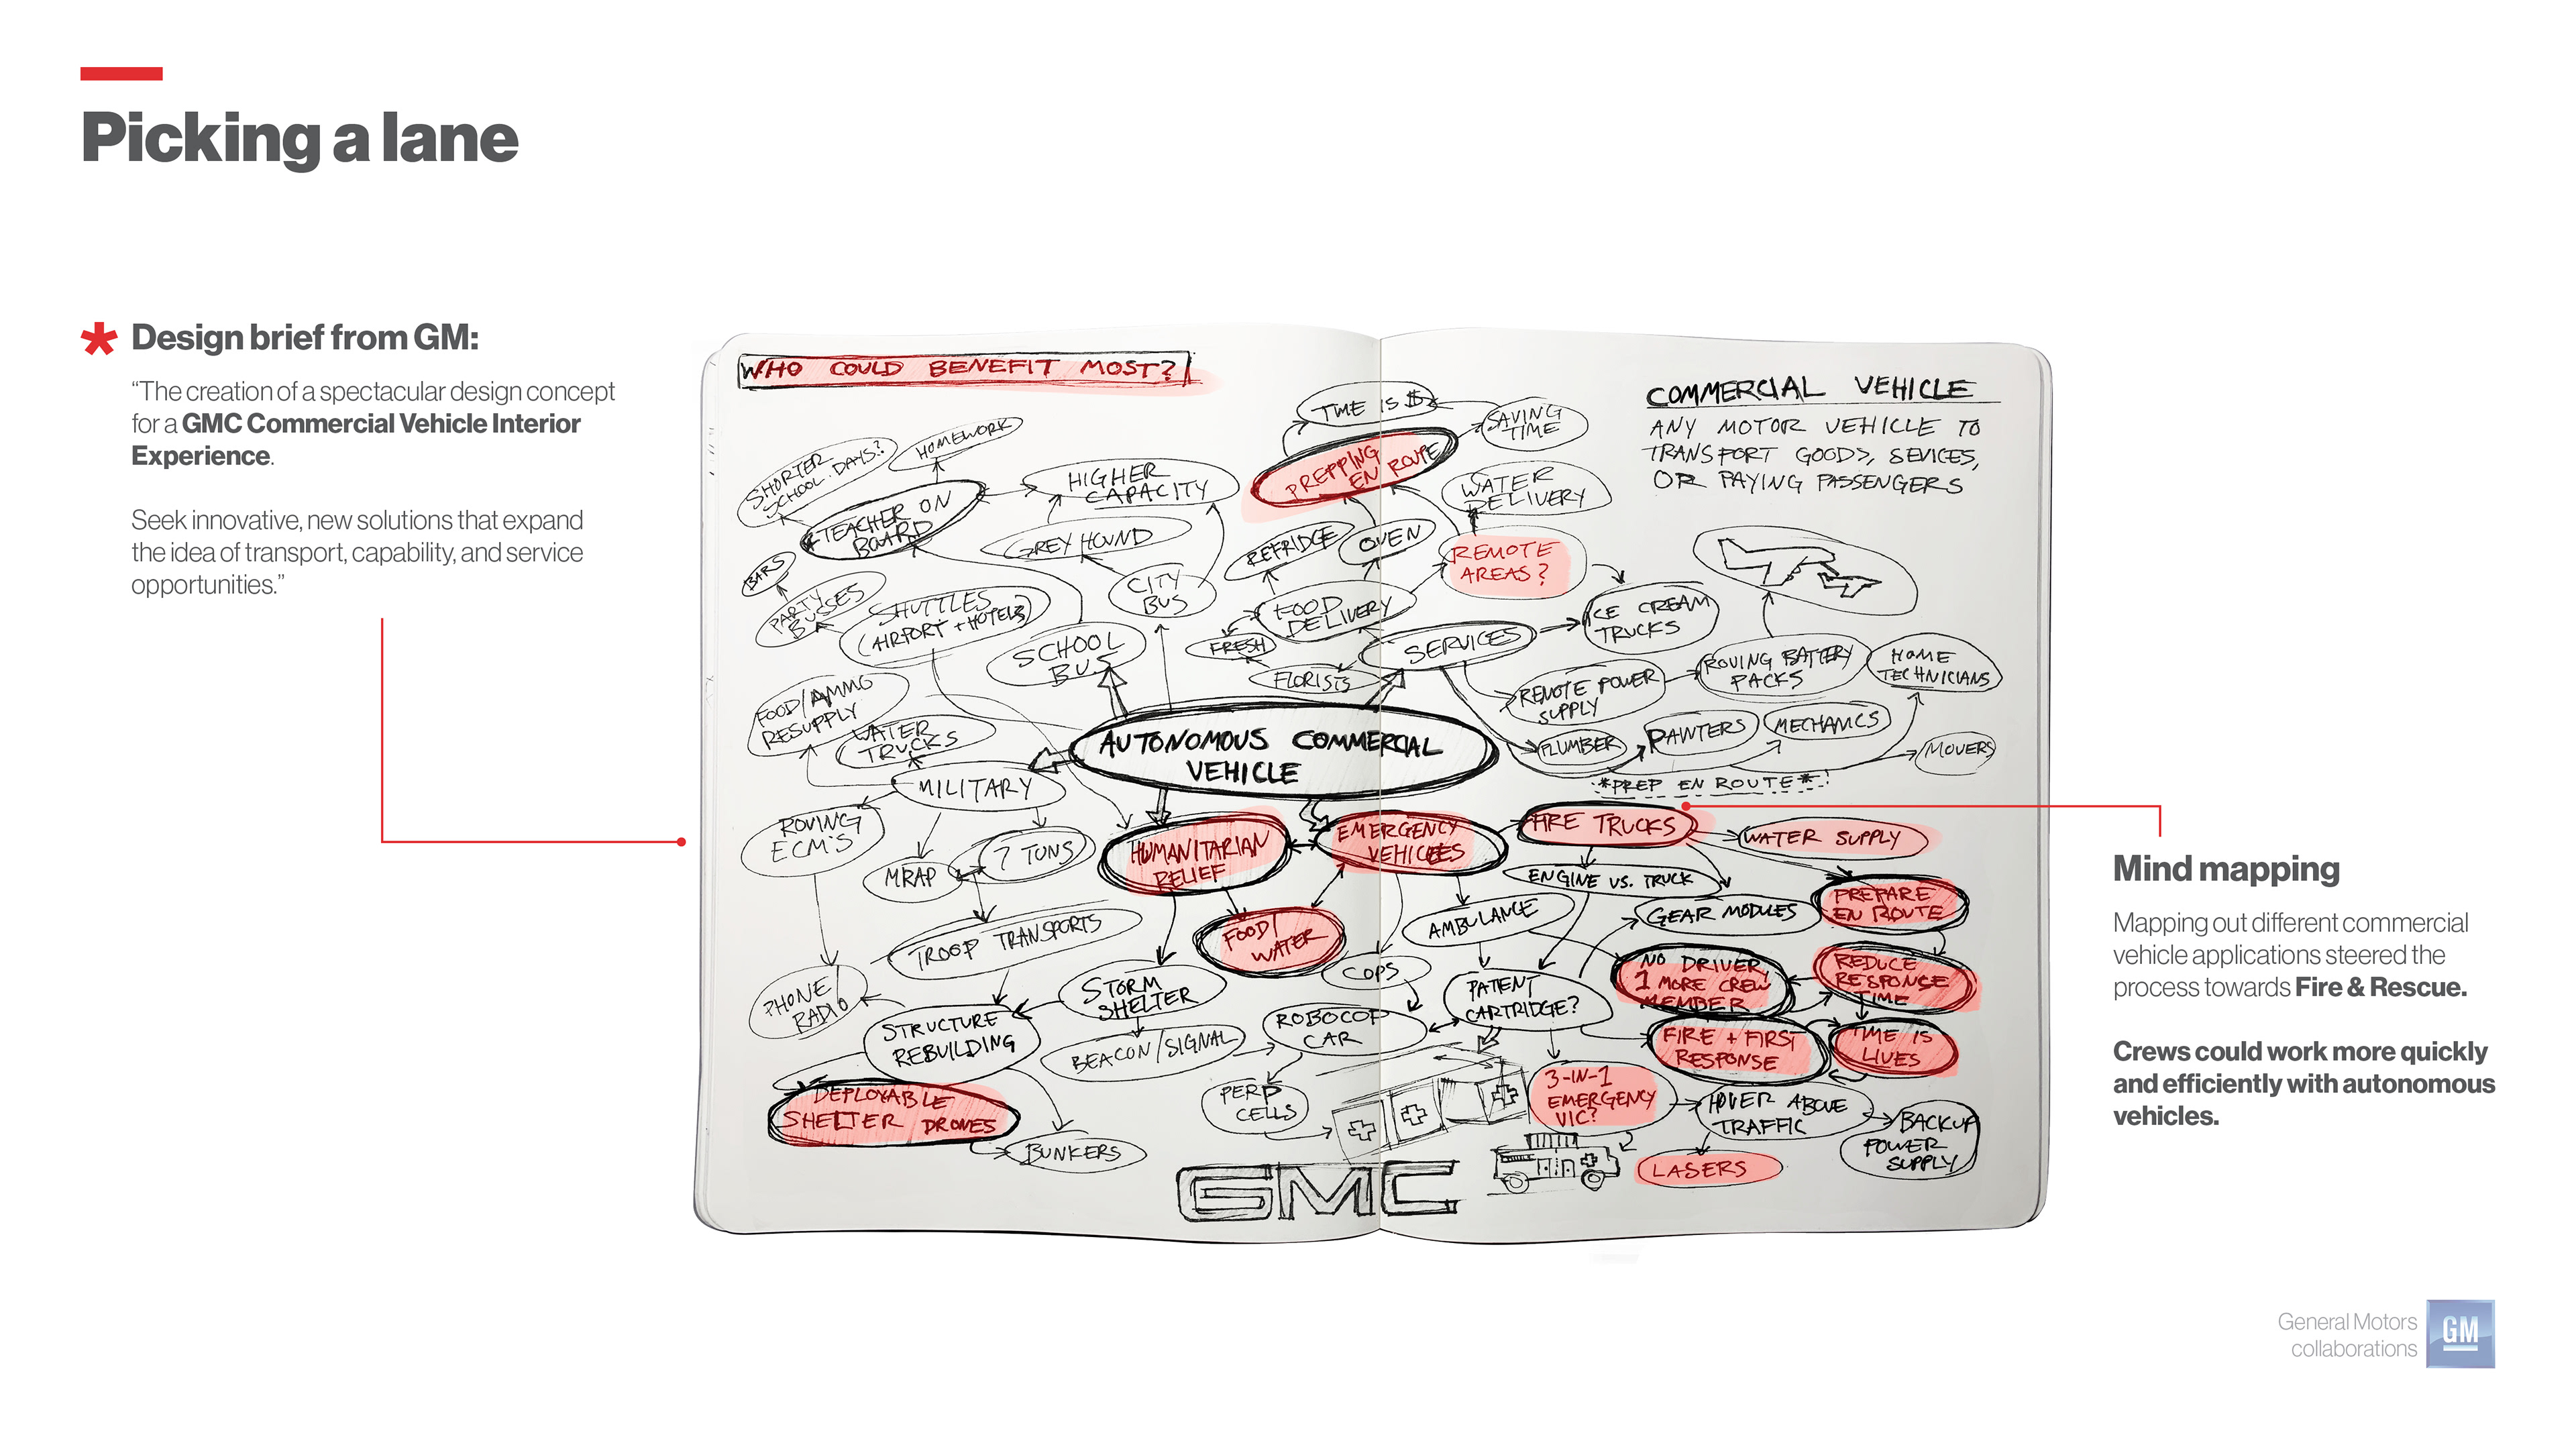 Picking a lane
* Design brief from GM:
“The creation of a spectacular design concept
for a GMC Commercial Vehicle Interior
Experience.
Seek innovative, new solutions that expand
the idea of transport, capability, and service
opportunities.”
WHO COULD BENEFIT MOST?
COMMERCIAL VEHICLE
ANY MOTOR VEHICLE TO
TRANSPORT GOODS, SEVICES,
OR PAYING PASSENGERS
TIME IS $
SAVING
TIME
PREPPING
EN ROUTE
HOMEWORK
SHORTER
SCHOOL DAYS?
TEACHER ON
BOARD
HIGHER
CAPACITY
GREYHOUND
CITY
BUS
WATER
DELIVERY
REFRIDGE
OVEN
REMOTE
AREAS?
BARS
PARTY
BUSSES
SHUTTLES
(AIRPORT + HOTELS)
SCHOOL
BUS
FOOD
DELIVERY
FRESH
FLORISTS
SERVICES
ICE CREAM
TRUCKS
REMOTE POWER
SUPPLY
ROVING BATTERY
PACKS
HOME
TECHNICIANS
PLUMBER
PAINTERS
MECHANICS
MOVERS
*PREP EN ROUTE*!
FOOD/AMMO
RESUPPLY
WATER
TRUCKS
AUTONOMOUS COMMERCIAL
VEHICLE
MILITARY
ROVING
ECM'S
MRAP
7 TONS
TROOP TRANSPORTS
PHONE/
RADIO
STRUCTURE
REBUILDING
DEPLOYABLE
SHELTER DRONES
BUNKERS
HUMANITARIAN
RELIEF
EMERGENCY
VEHICLES
FOOD/
WATER
STORM
SHELTER
BEACON/SIGNAL
COPS
ROBOCOP
CAR
PERP
CELLS
FIRE TRUCKS
WATER SUPPLY
ENGINE VS. TRUCK
AMBULANCE
GEAR MODULES
PREPARE
EN ROUTE
PATIENT
CARTRIDGE?
NO DRIVER,
1 MORE CREW
MEMBER
REDUCE
RESPONSE
TIME
FIRE + FIRST
RESPONSE
TIME IS
LIVES
3-IN-1
EMERGENCY
VIC?
HOVER ABOVE
TRAFFIC
BACKUP
POWER
SUPPLY
LASERS
GMC
Mind mapping
Mapping out different commercial
vehicle applications steered the
process towards Fire & Rescue.
Crews could work more quickly
and efficiently with autonomous
vehicles.
General Motors
collaborations
GM